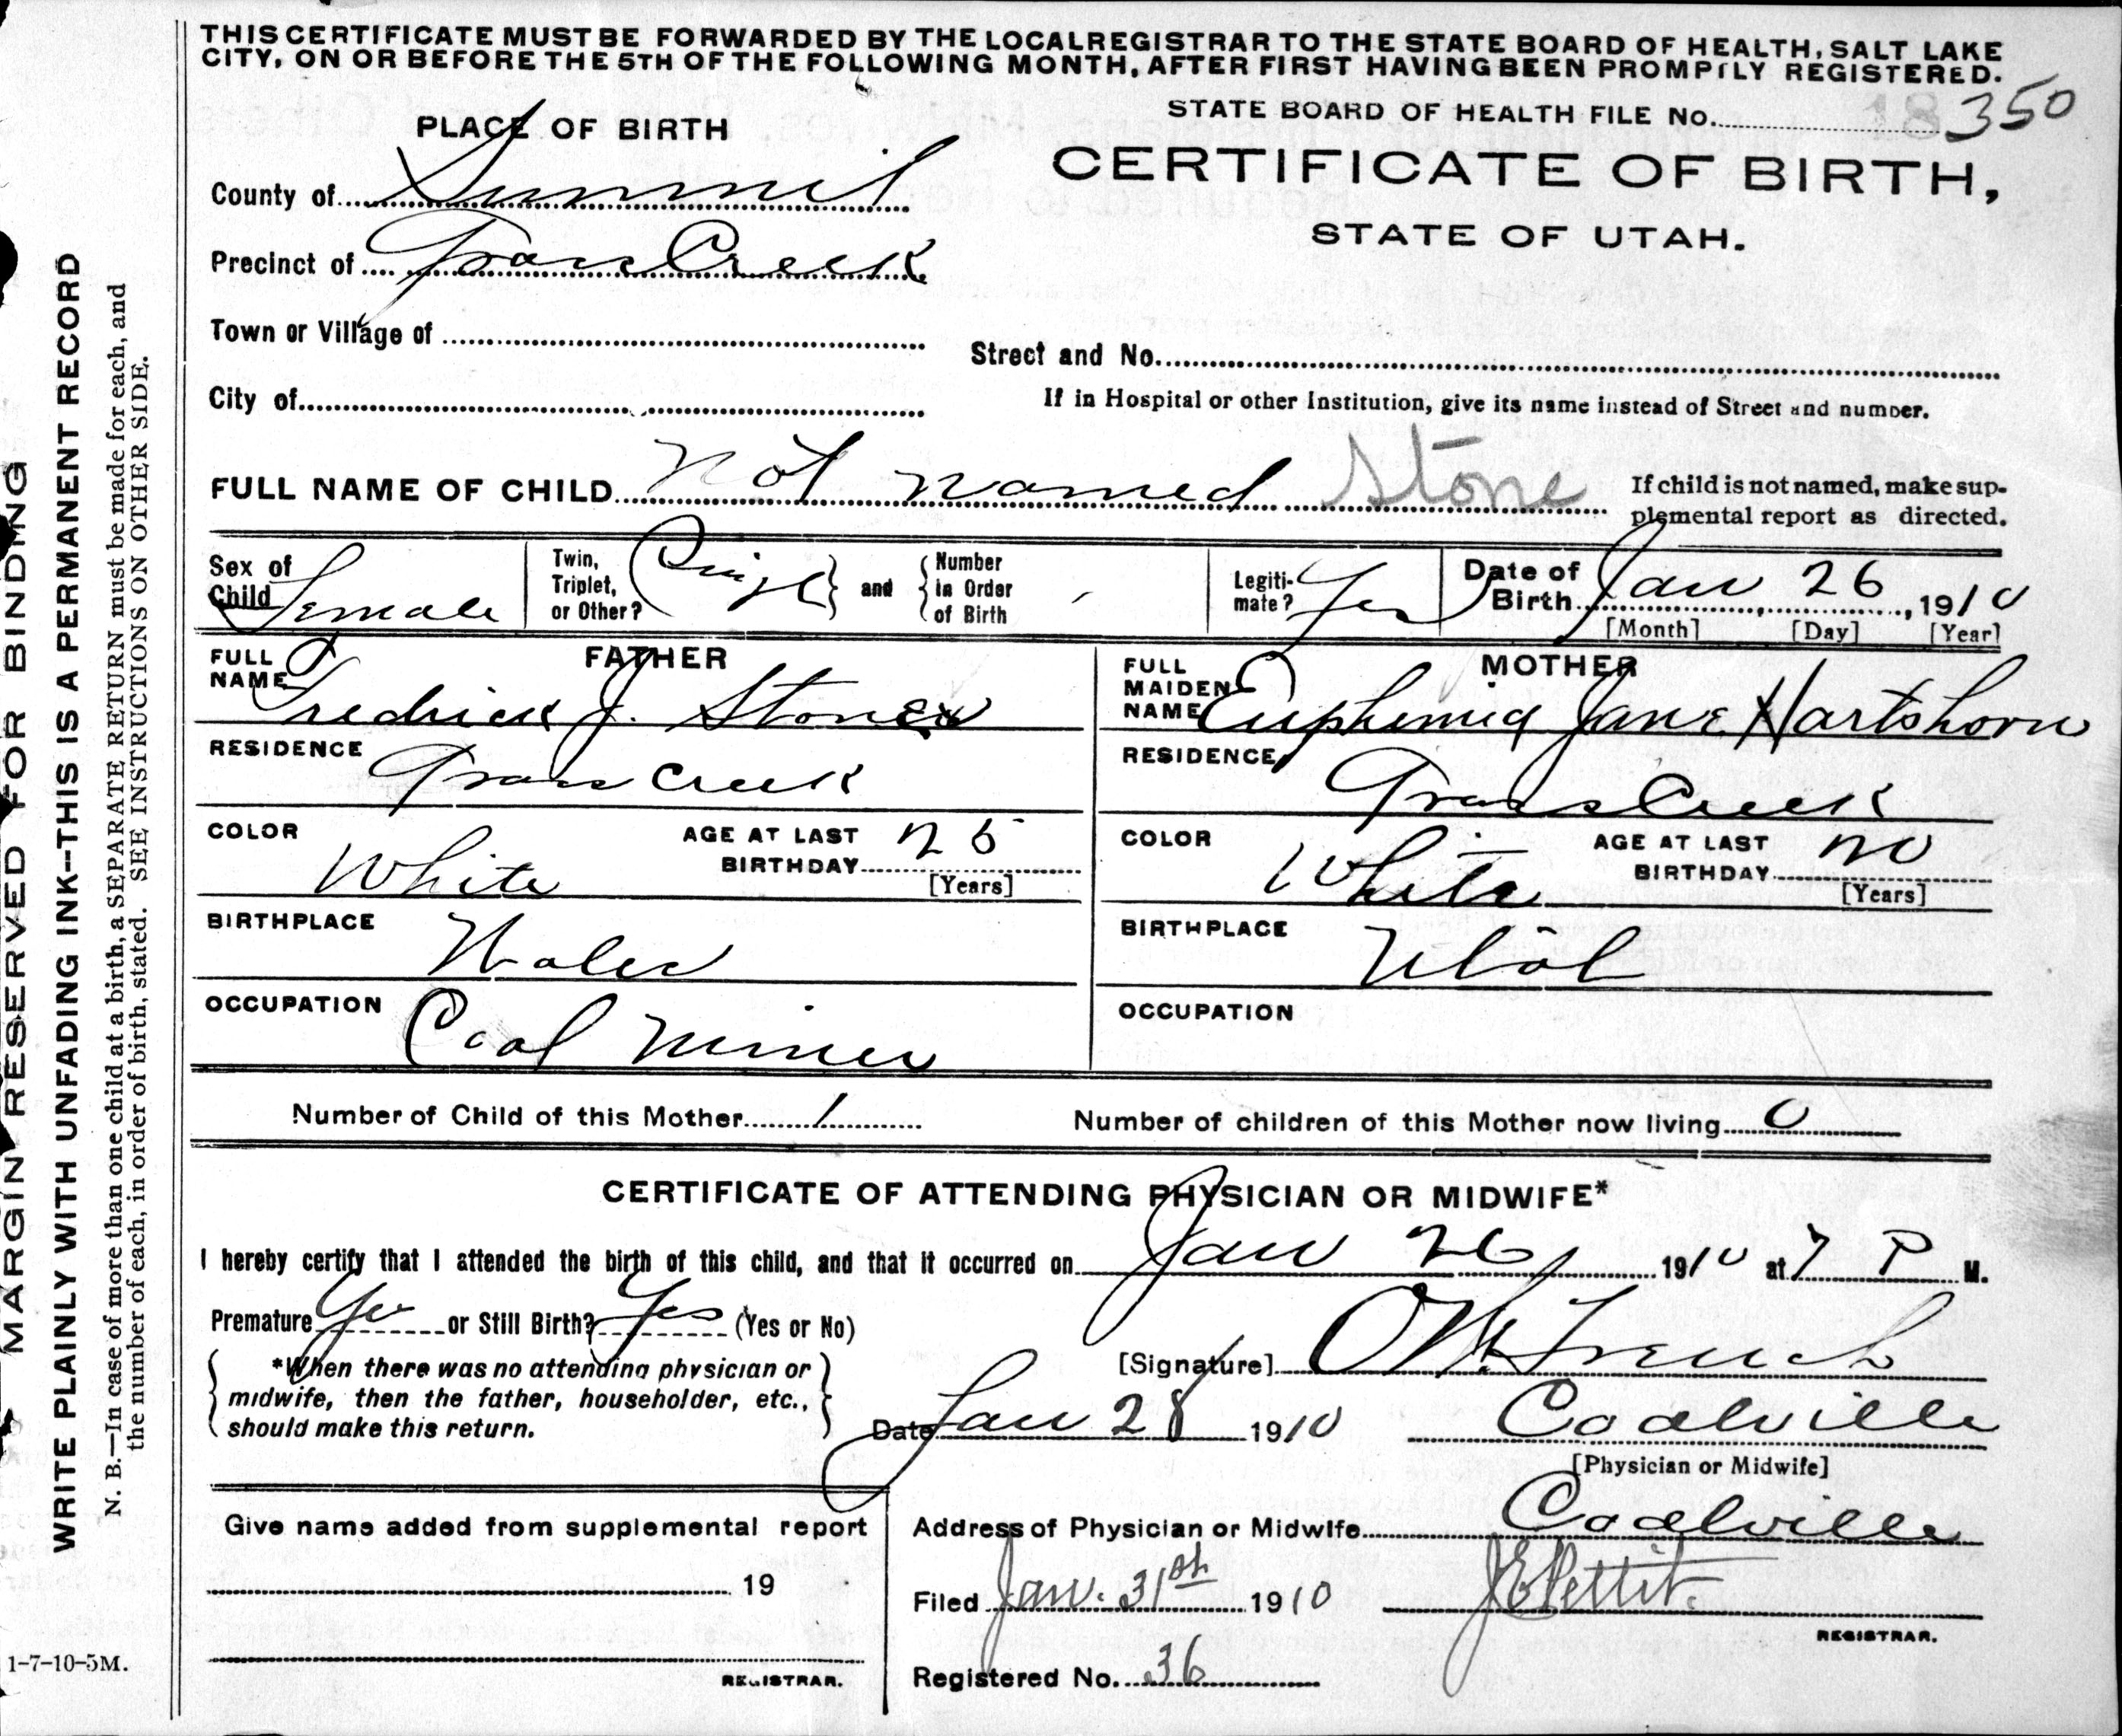 THIS CERTIFICATE MUST BE FORWARDED BY THE LOCAL REGISTRAR TO THE STATE BOARD OF HEALTH, SALT LAKE
CITY, ON OR BEFORE THE 5TH OF THE FOLLOWING MONTH, AFTER FIRST HAVING BEEN PROMPTLY REGISTERED.
STATE BOARD OF HEALTH FILE No. 350
PLACE OF BIRTH
CERTIFICATE OF BIRTH,
STATE OF UTAH.
County of Summit
Precinct of Grass Creek
Town or Village of
Street and No.
City of
If in Hospital or other Institution, give its name instead of Street and number.
FULL NAME OF CHILD Not named Stone
If child is not named, make sup-
plemental report as directed.
Sex of Child Female
Twin, Triplet, or Other? Single and Number in Order of Birth
Legiti-mate? Yes
Date of Birth Jan 26, 1910
[Month] [Day] [Year]
FATHER
FULL NAME Fredrick J. Stone
RESIDENCE Grass Creek
COLOR White
AGE AT LAST BIRTHDAY 25
[Years]
BIRTHPLACE Wales
OCCUPATION Coal Miner
MOTHER
FULL MAIDEN NAME Euphemia Jane Hartshorn
RESIDENCE Grass Creek
COLOR White
AGE AT LAST BIRTHDAY 20
[Years]
BIRTHPLACE Utah
OCCUPATION
Number of Child of this Mother 1
Number of children of this Mother now living 0
CERTIFICATE OF ATTENDING PHYSICIAN OR MIDWIFE*
I hereby certify that I attended the birth of this child, and that it occurred on Jan 26, 1910 at 7 P M.
Premature Yes or Still Birth? Yes (Yes or No)
*When there was no attending physician or
midwife, then the father, householder, etc.,
should make this return.
[Signature] French
Date Jan 28 1910
Coalville
[Physician or Midwife]
Give name added from supplemental report
19
REGISTRAR.
Address of Physician or Midwife Coalville
Filed Jan. 31st 1910
J E Pettit.
REGISTRAR.
Registered No. 36
MARGIN RESERVED FOR BINDING
WRITE PLAINLY WITH UNFADING INK--THIS IS A PERMANENT RECORD
N. B.—In case of more than one child at a birth, a SEPARATE RETURN must be made for each, and
the number of each, in order of birth, stated. SEE INSTRUCTIONS ON OTHER SIDE.
1-7-10-5M.